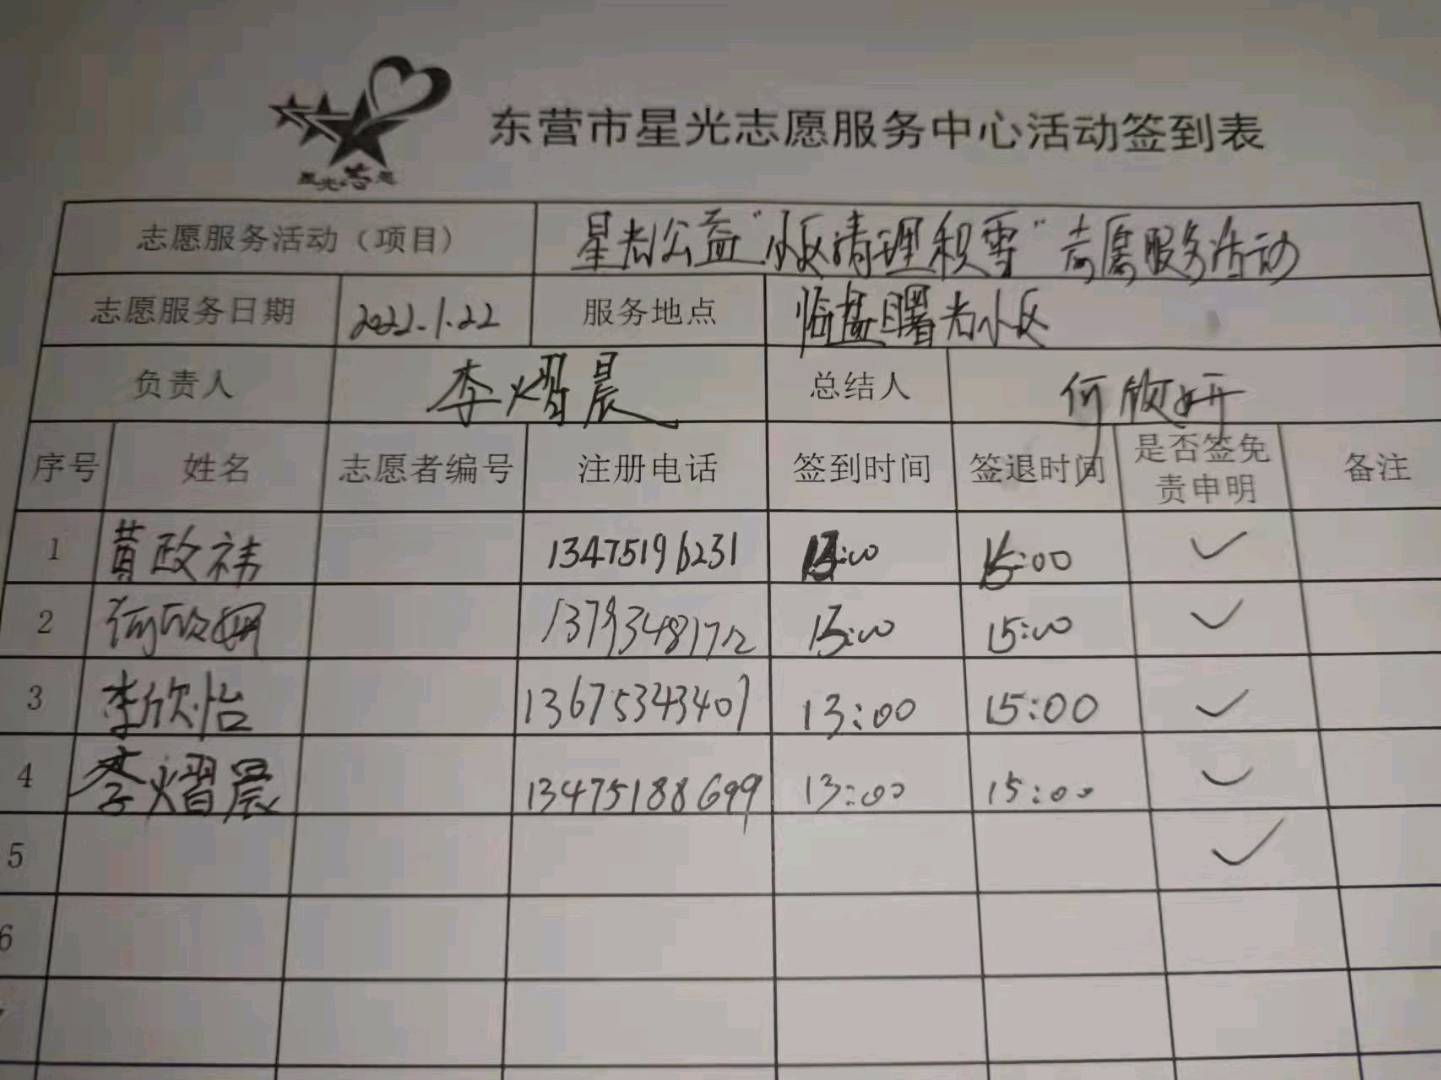 星光志愿
东营市星光志愿服务中心活动签到表
志愿服务活动（项目） 星光公益“小区清理积雪”志愿服务活动
志愿服务日期 2022.1.22 服务地点 临盘曙光小区
负责人 李熠晨 总结人 何欣妍
序号 姓名 志愿者编号 注册电话 签到时间 签退时间 是否签免责申明 备注
1 黄政祎 13475196231 13:00 15:00 ✓
2 何欣妍 13793481712 13:00 15:00 ✓
3 李欣怡 13675343407 13:00 15:00 ✓
4 李熠晨 13475188699 13:00 15:00 ✓
5 ✓
6